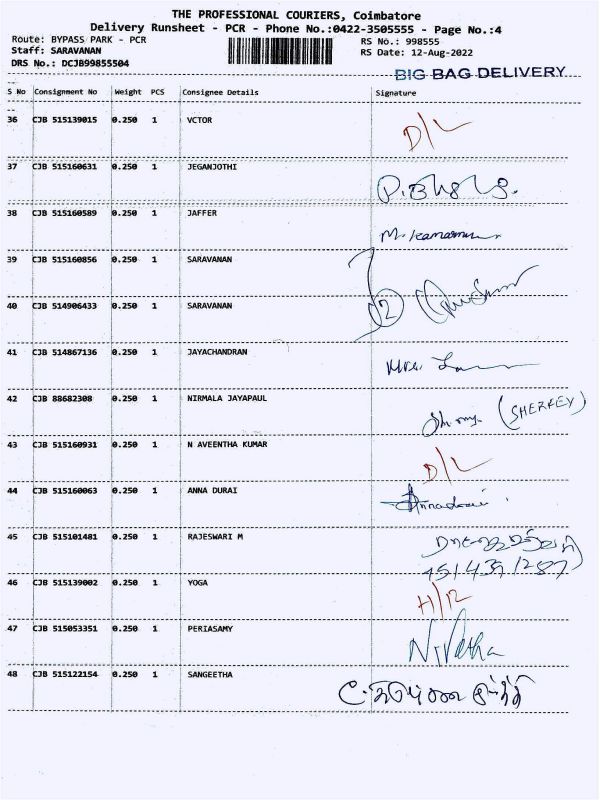 THE PROFESSIONAL COURIERS, Coimbatore
Delivery Runsheet - PCR - Phone No.:0422-3505555 - Page No.:4
Route: BYPASS PARK - PCR
RS No.: 998555
Staff: SARAVANAN
RS Date: 12-Aug-2022
DRS No.: DCJB99855504
BIG BAG DELIVERY
S No Consignment No Weight PCS Consignee Details Signature
36 CJB 515139015 0.250 1 VCTOR D/L
37 CJB 515160631 0.250 1 JEGANJOTHI
38 CJB 515160589 0.250 1 JAFFER
39 CJB 515160856 0.250 1 SARAVANAN
40 CJB 514906433 0.250 1 SARAVANAN 2
41 CJB 514867136 0.250 1 JAYACHANDRAN
42 CJB 88682308 0.250 1 NIRMALA JAYAPAUL
43 CJB 515160931 0.250 1 N AVEENTHA KUMAR D/L
44 CJB 515160063 0.250 1 ANNA DURAI
45 CJB 515101481 0.250 1 RAJESWARI M
46 CJB 515139002 0.250 1 YOGA
47 CJB 515053351 0.250 1 PERIASAMY
48 CJB 515122154 0.250 1 SANGEETHA